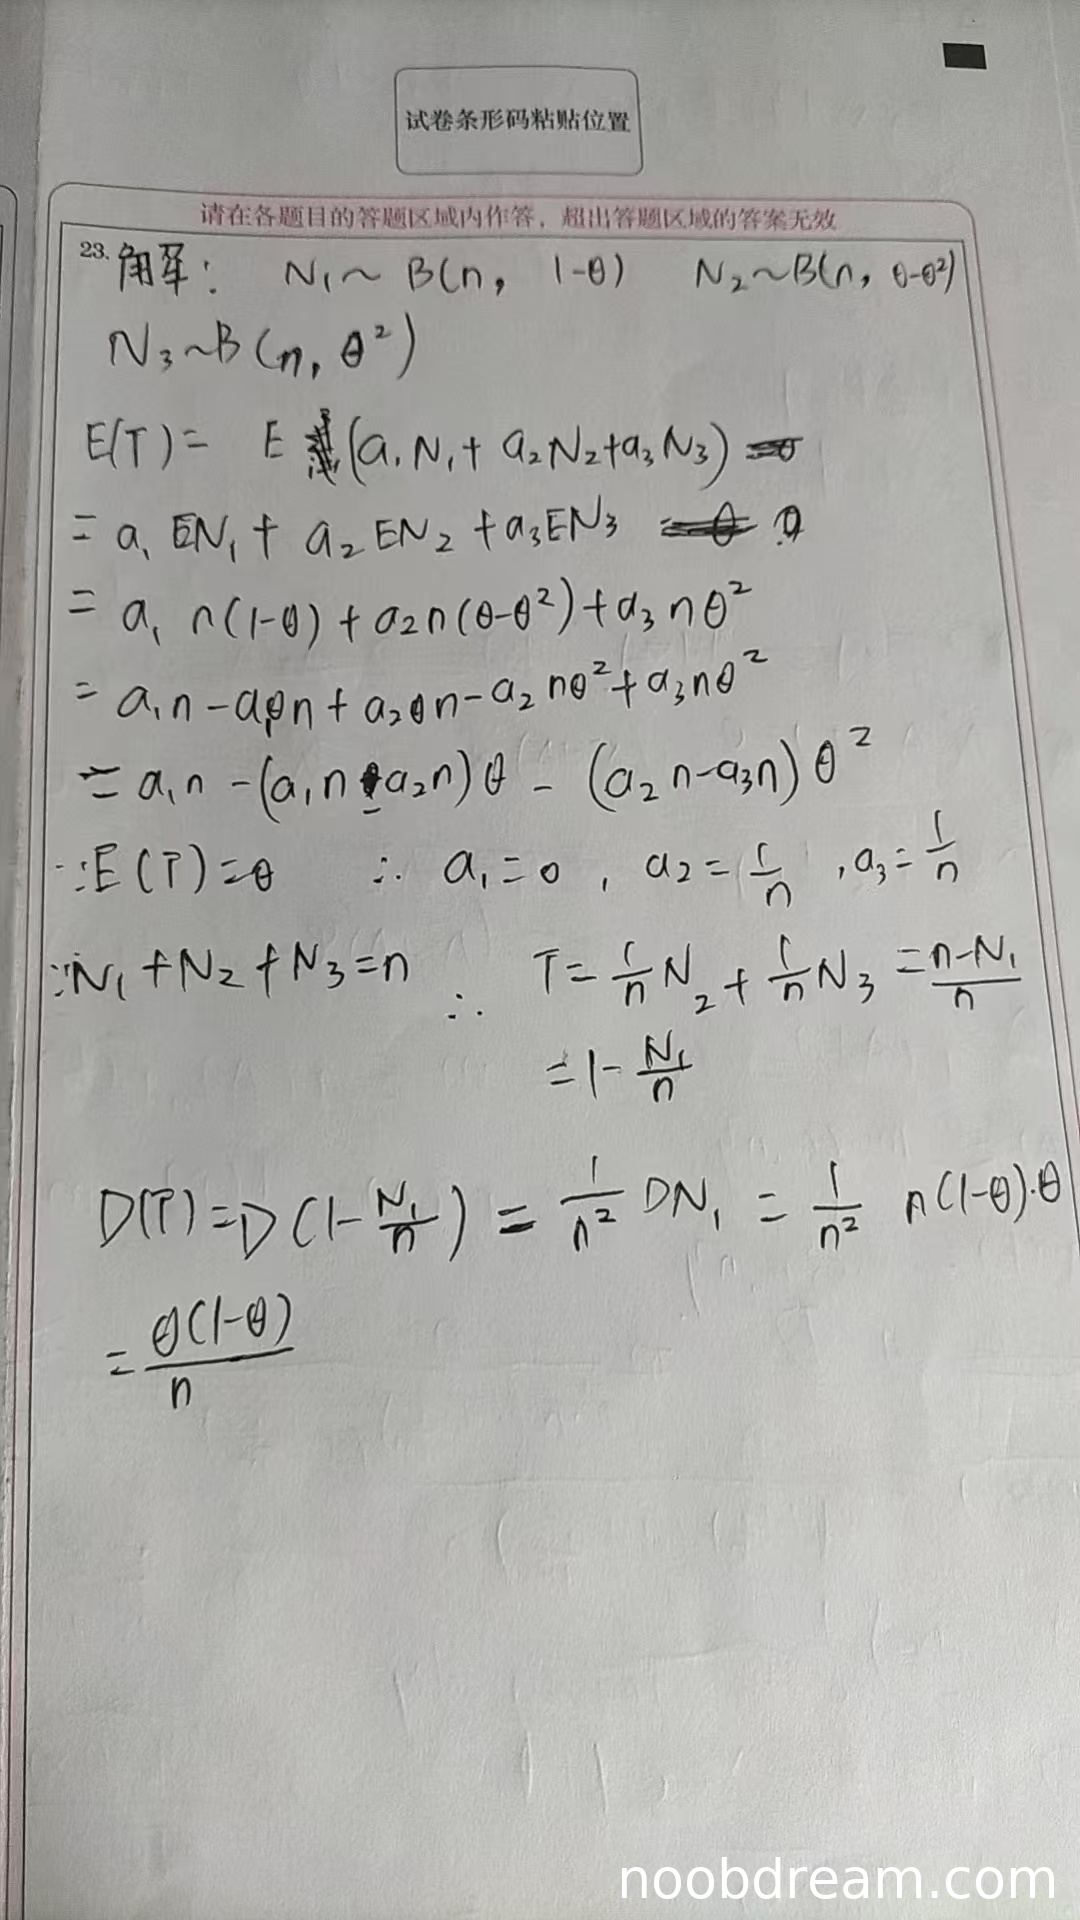 试卷条形码粘贴位置
请在各题目的答题区域内作答，超出答题区域的答案无效
23. 解： N₁~B(n, 1-θ) N₂~B(n, θ-θ²)
N₃~B(n, θ²)
E(T)= E(a₁N₁+a₂N₂+a₃N₃)
=a₁EN₁+a₂EN₂+a₃EN₃
=a₁n(1-θ)+a₂n(θ-θ²)+a₃nθ²
=a₁n-a₁θn+a₂θn-a₂nθ²+a₃nθ²
=a₁n-(a₁n-a₂n)θ-(a₂n-a₃n)θ²
∵E(T)=θ ∴ a₁=0, a₂=1/n, a₃=1/n
∵N₁+N₂+N₃=n ∴ T=1/n N₂+1/n N₃=(n-N₁)/n
=1-N₁/n
D(T)=D(1-N₁/n)=1/n² DN₁=1/n² n(1-θ)·θ
=θ(1-θ)/n
noobdream.com